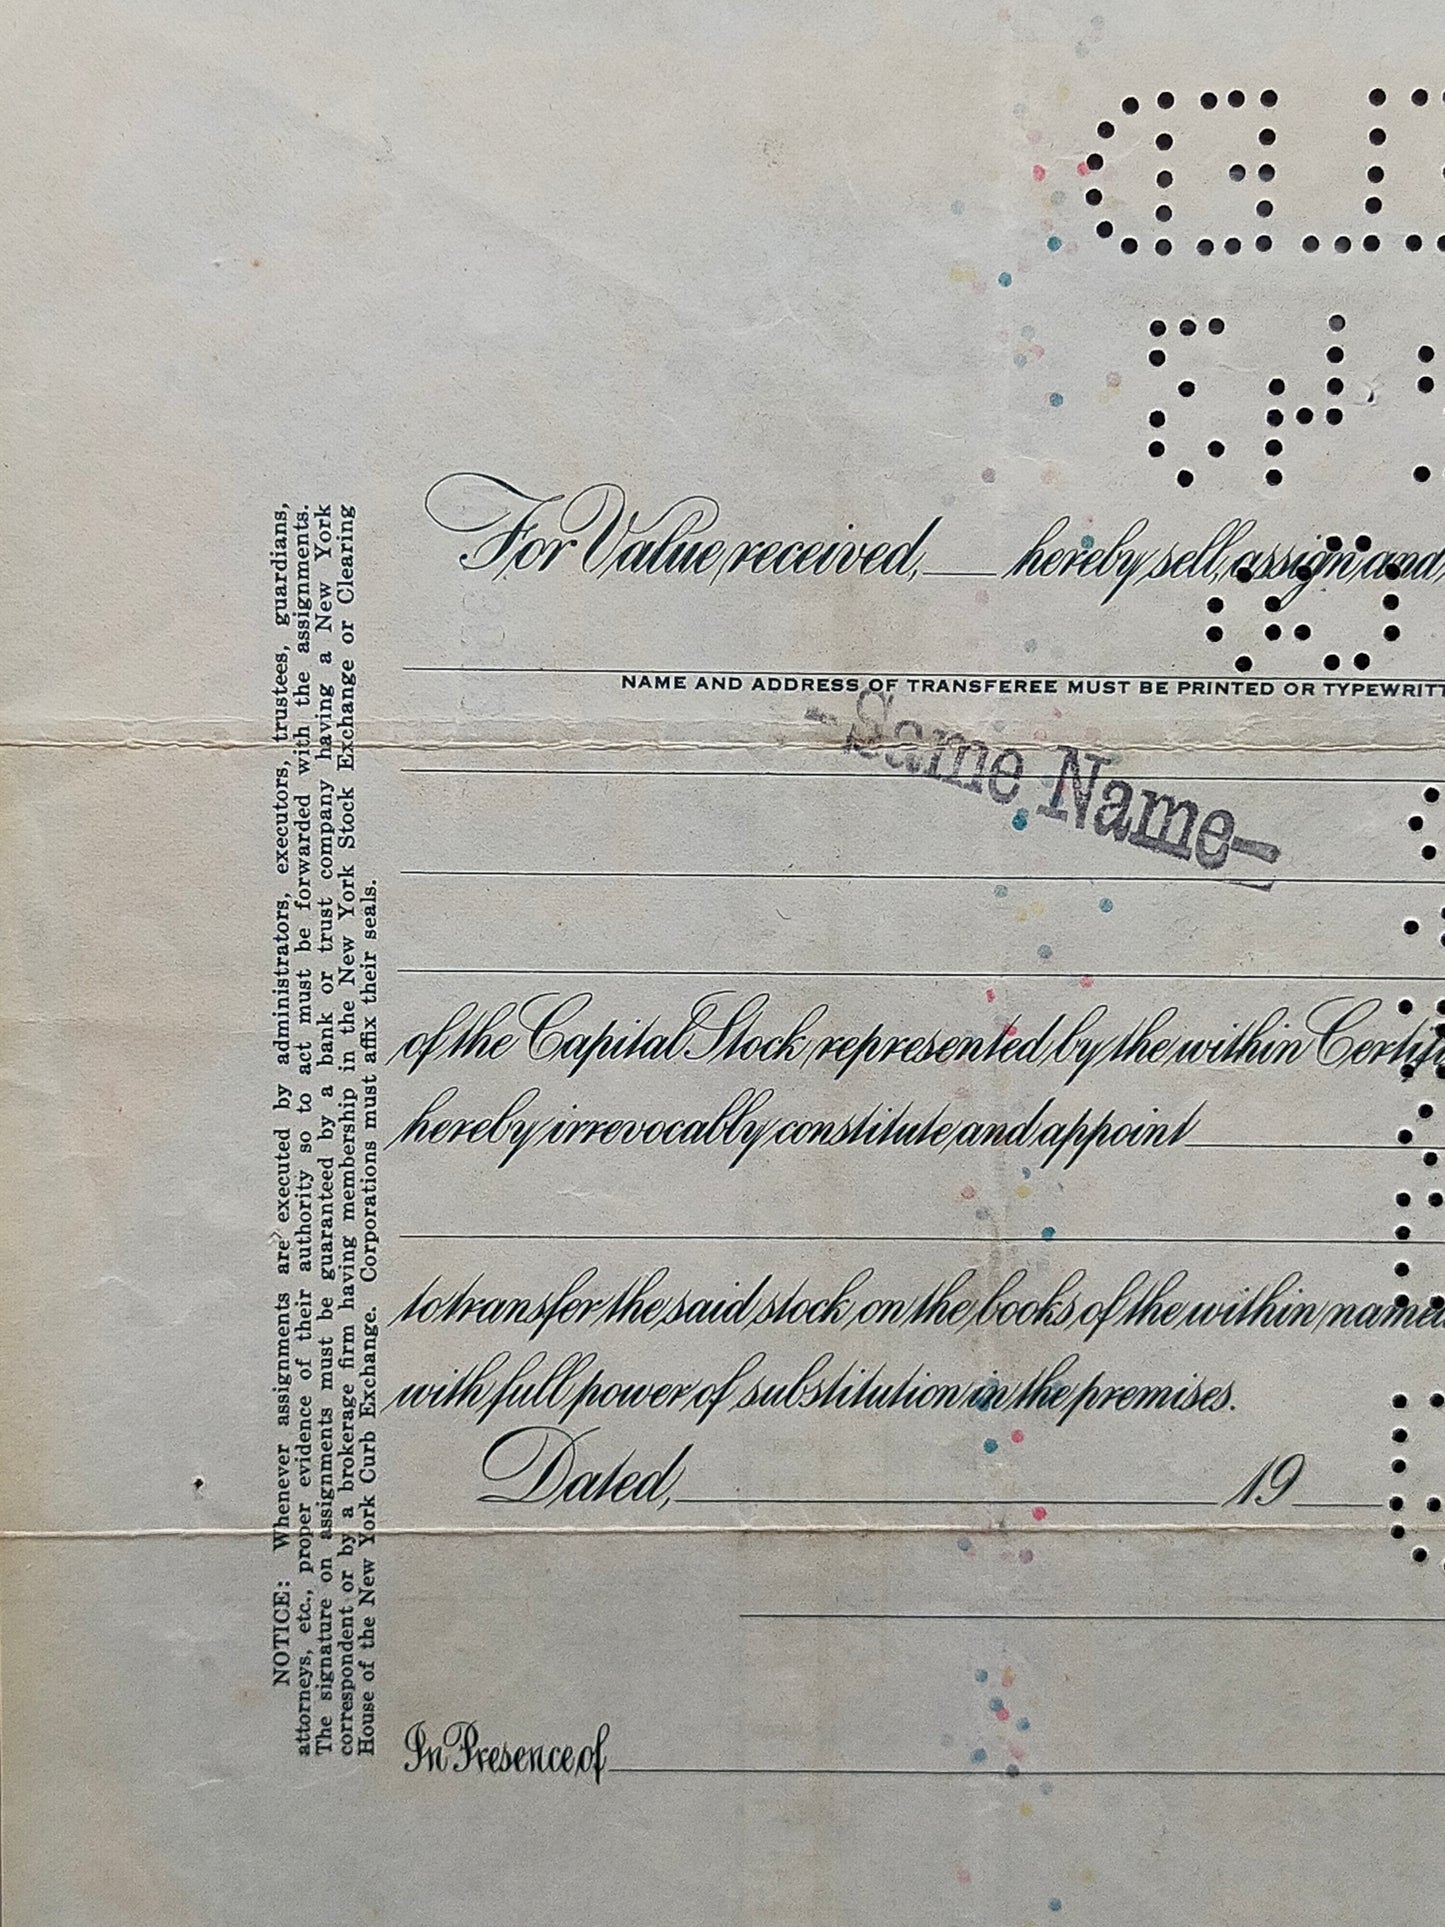 For Value received, ___ hereby sell, assign and
NAME AND ADDRESS OF TRANSFEREE MUST BE PRINTED OR TYPEWRITT
-Same Name-
of the Capital Stock represented by the within Certif
hereby irrevocably constitute and appoint
to transfer the said stock on the books of the within named
with full power of substitution in the premises.
Dated, 19
In Presence of
NOTICE: Whenever assignments are executed by administrators, executors, trustees, guardians,
attorneys, etc., proper evidence of their authority so to act must be forwarded with the assignments.
The signature on assignments must be guaranteed by a bank or trust company having a New York
correspondent or by a brokerage firm having membership in the New York Stock Exchange or Clearing
House of the New York Curb Exchange. Corporations must affix their seals.